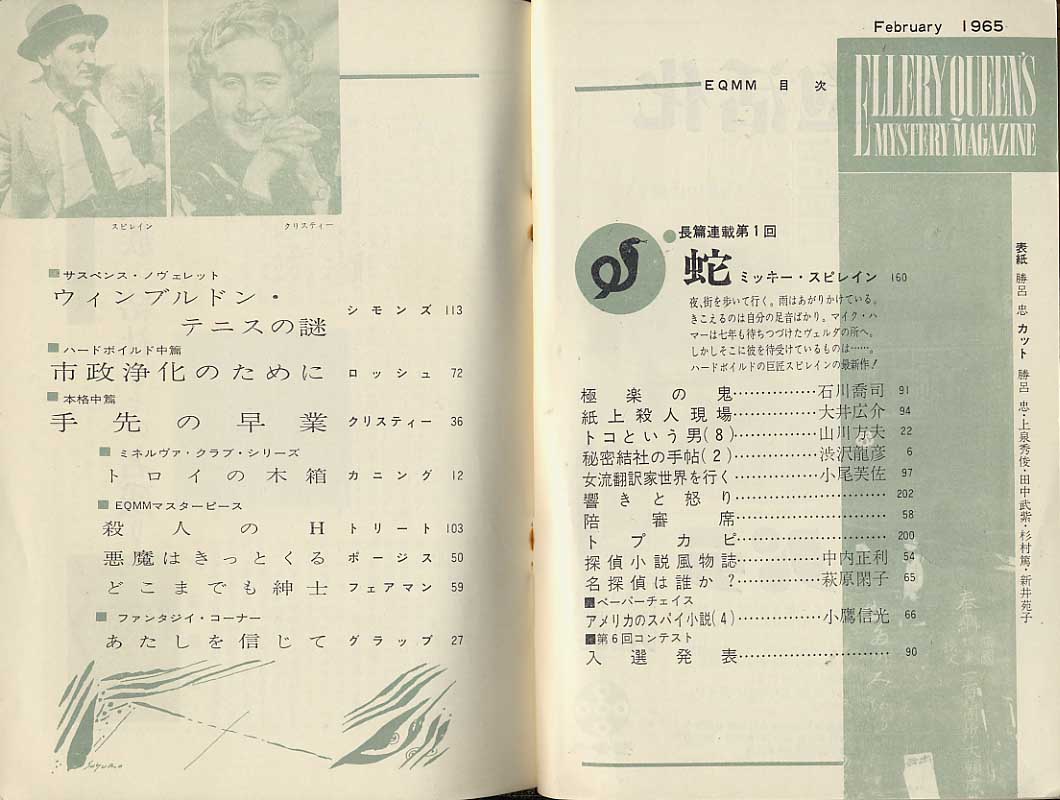 スピレイン
クリスティー
サスペンス・ノヴェレット
ウィンブルドン・
テニスの謎 シモンズ 113
ハードボイルド中篇
市政浄化のために ロッシュ 72
本格中篇
手先の早業 クリスティー 36
ミネルヴァ・クラブ・シリーズ
トロイの木箱 カニング 12
EQMMマスターピース
殺人のH トリート 103
悪魔はきっとくる ポージス 50
どこまでも紳士 フェアマン 59
ファンタジイ・コーナー
あたしを信じて グラップ 27
February 1965
EQMM 目次
ELLERY QUEEN'S
MYSTERY MAGAZINE
長篇連載第1回
蛇 ミッキー・スピレイン 160
夜、街を歩いて行く。雨はあがりかけている。
きこえるのは自分の足音ばかり。マイク・ハ
マーは七年も待ちつづけたヴェルダの所へ。
しかしそこに彼を待受けているものは……。
ハードボイルドの巨匠スピレインの最新作!
極楽の鬼……………石川喬司 91
紙上殺人現場……………大井広介 94
トコという男(8)……………山川方夫 22
秘密結社の手帖(2)……………渋沢龍彦 6
女流翻訳家世界を行く……………小尾芙佐 97
響きと怒り……………202
陪審席……………58
トプカピ……………200
探偵小説風物誌……………中内正利 54
名探偵は誰か?……………萩原閑子 65
ペーパーチェイス
アメリカのスパイ小説(4)……………小鷹信光 66
第6回コンテスト
入選発表……………90
表紙 勝呂 忠 カット 勝呂 忠・上泉秀俊・田中武紫・杉村篤・新井苑子